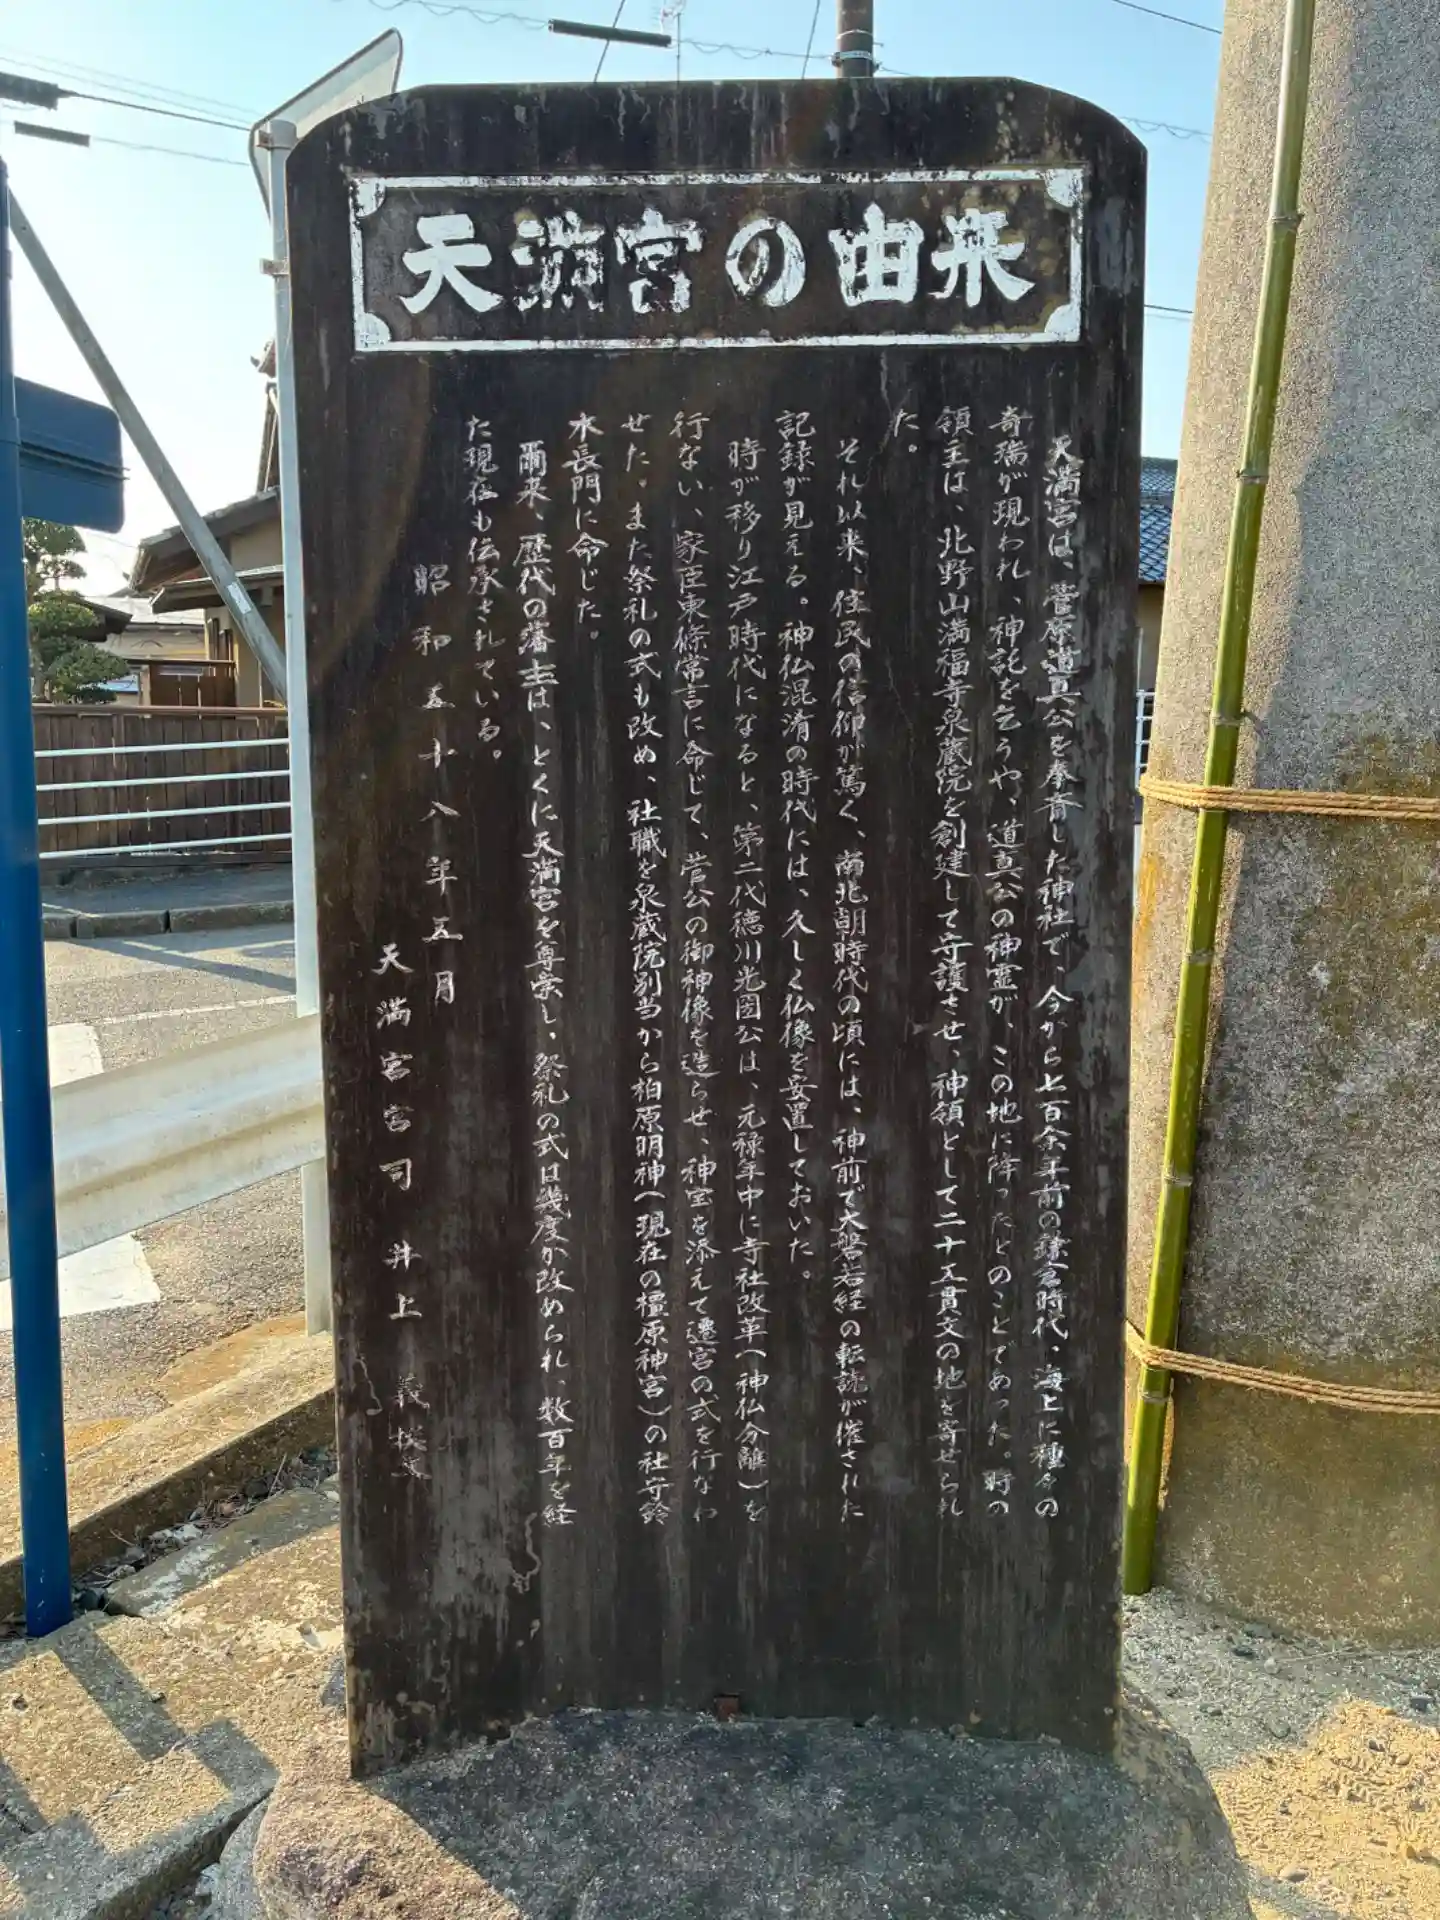 天満宮の由来
天満宮は、菅原道真公を奉斉した神社で、今から七百余年前の鎌倉時代、海上に種々の
奇瑞が現われ、神託を乞うや、道真公の神霊が、この地に降ったとのことであった。時の
領主は、北野山満福寺泉蔵院を創建して守護させ、神領として二十五貫文の地を寄せられ
た。
それ以来、住民の信仰が篤く、南北朝時代の頃には、神前で大磐若経の転読が催された
記録が見える。神仏混淆の時代には、久しく仏像を安置しておいた。
時が移り江戸時代になると、第二代徳川光圀公は、元禄年中に寺社改革(神仏分離)を
行ない、家臣東條常言に命じて、菅公の御神像を造らせ、神宝を添えて遷宮の式を行なわ
せた。また祭礼の式も改め、社職を泉蔵院別当から柏原明神(現在の橿原神宮)の社守鈴
木長門に命じた。
爾来、歴代の藩主は、とくに天満宮を尊崇し、祭礼の式は幾度か改められ、数百年を経
た現在も伝承されている。
昭和五十八年五月
天満宮宮司 井上義